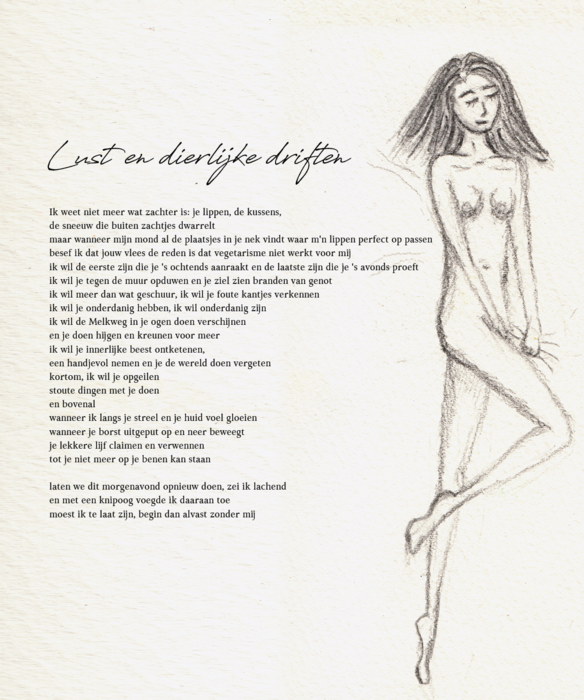 Lust en dierlijke driften
Ik weet niet meer wat zachter is: je lippen, de kussens,
de sneeuw die buiten zachtjes dwarrelt
maar wanneer mijn mond al de plaatsjes in je nek vindt waar m'n lippen perfect op passen
besef ik dat jouw vlees de reden is dat vegetarisme niet werkt voor mij
ik wil de eerste zijn die je 's ochtends aanraakt en de laatste zijn die je 's avonds proeft
ik wil je tegen de muur opduwen en je ziel zien branden van genot
ik wil meer dan wat geschuur, ik wil je foute kantjes verkennen
ik wil je onderdanig hebben, ik wil onderdanig zijn
ik wil de Melkweg in je ogen doen verschijnen
en je doen hijgen en kreunen voor meer
ik wil je innerlijke beest ontketenen,
een handjevol nemen en je de wereld doen vergeten
kortom, ik wil je opgeilen
stoute dingen met je doen
en bovenal
wanneer ik langs je streel en je huid voel gloeien
wanneer je borst uitgeput op en neer beweegt
je lekkere lijf claimen en verwennen
tot je niet meer op je benen kan staan
laten we dit morgenavond opnieuw doen, zei ik lachend
en met een knipoog voegde ik daaraan toe
moest ik te laat zijn, begin dan alvast zonder mij